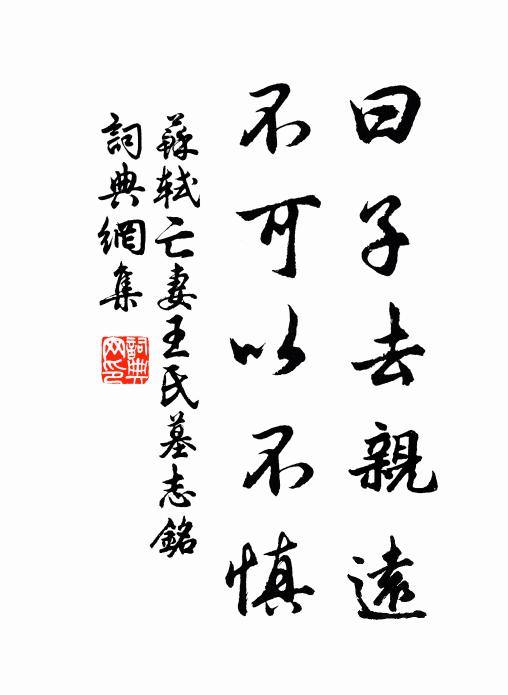 曰子去親遠
不可以不慎
蘇軾亡妻王氏墓志銘
詞典網集
詞典
网印